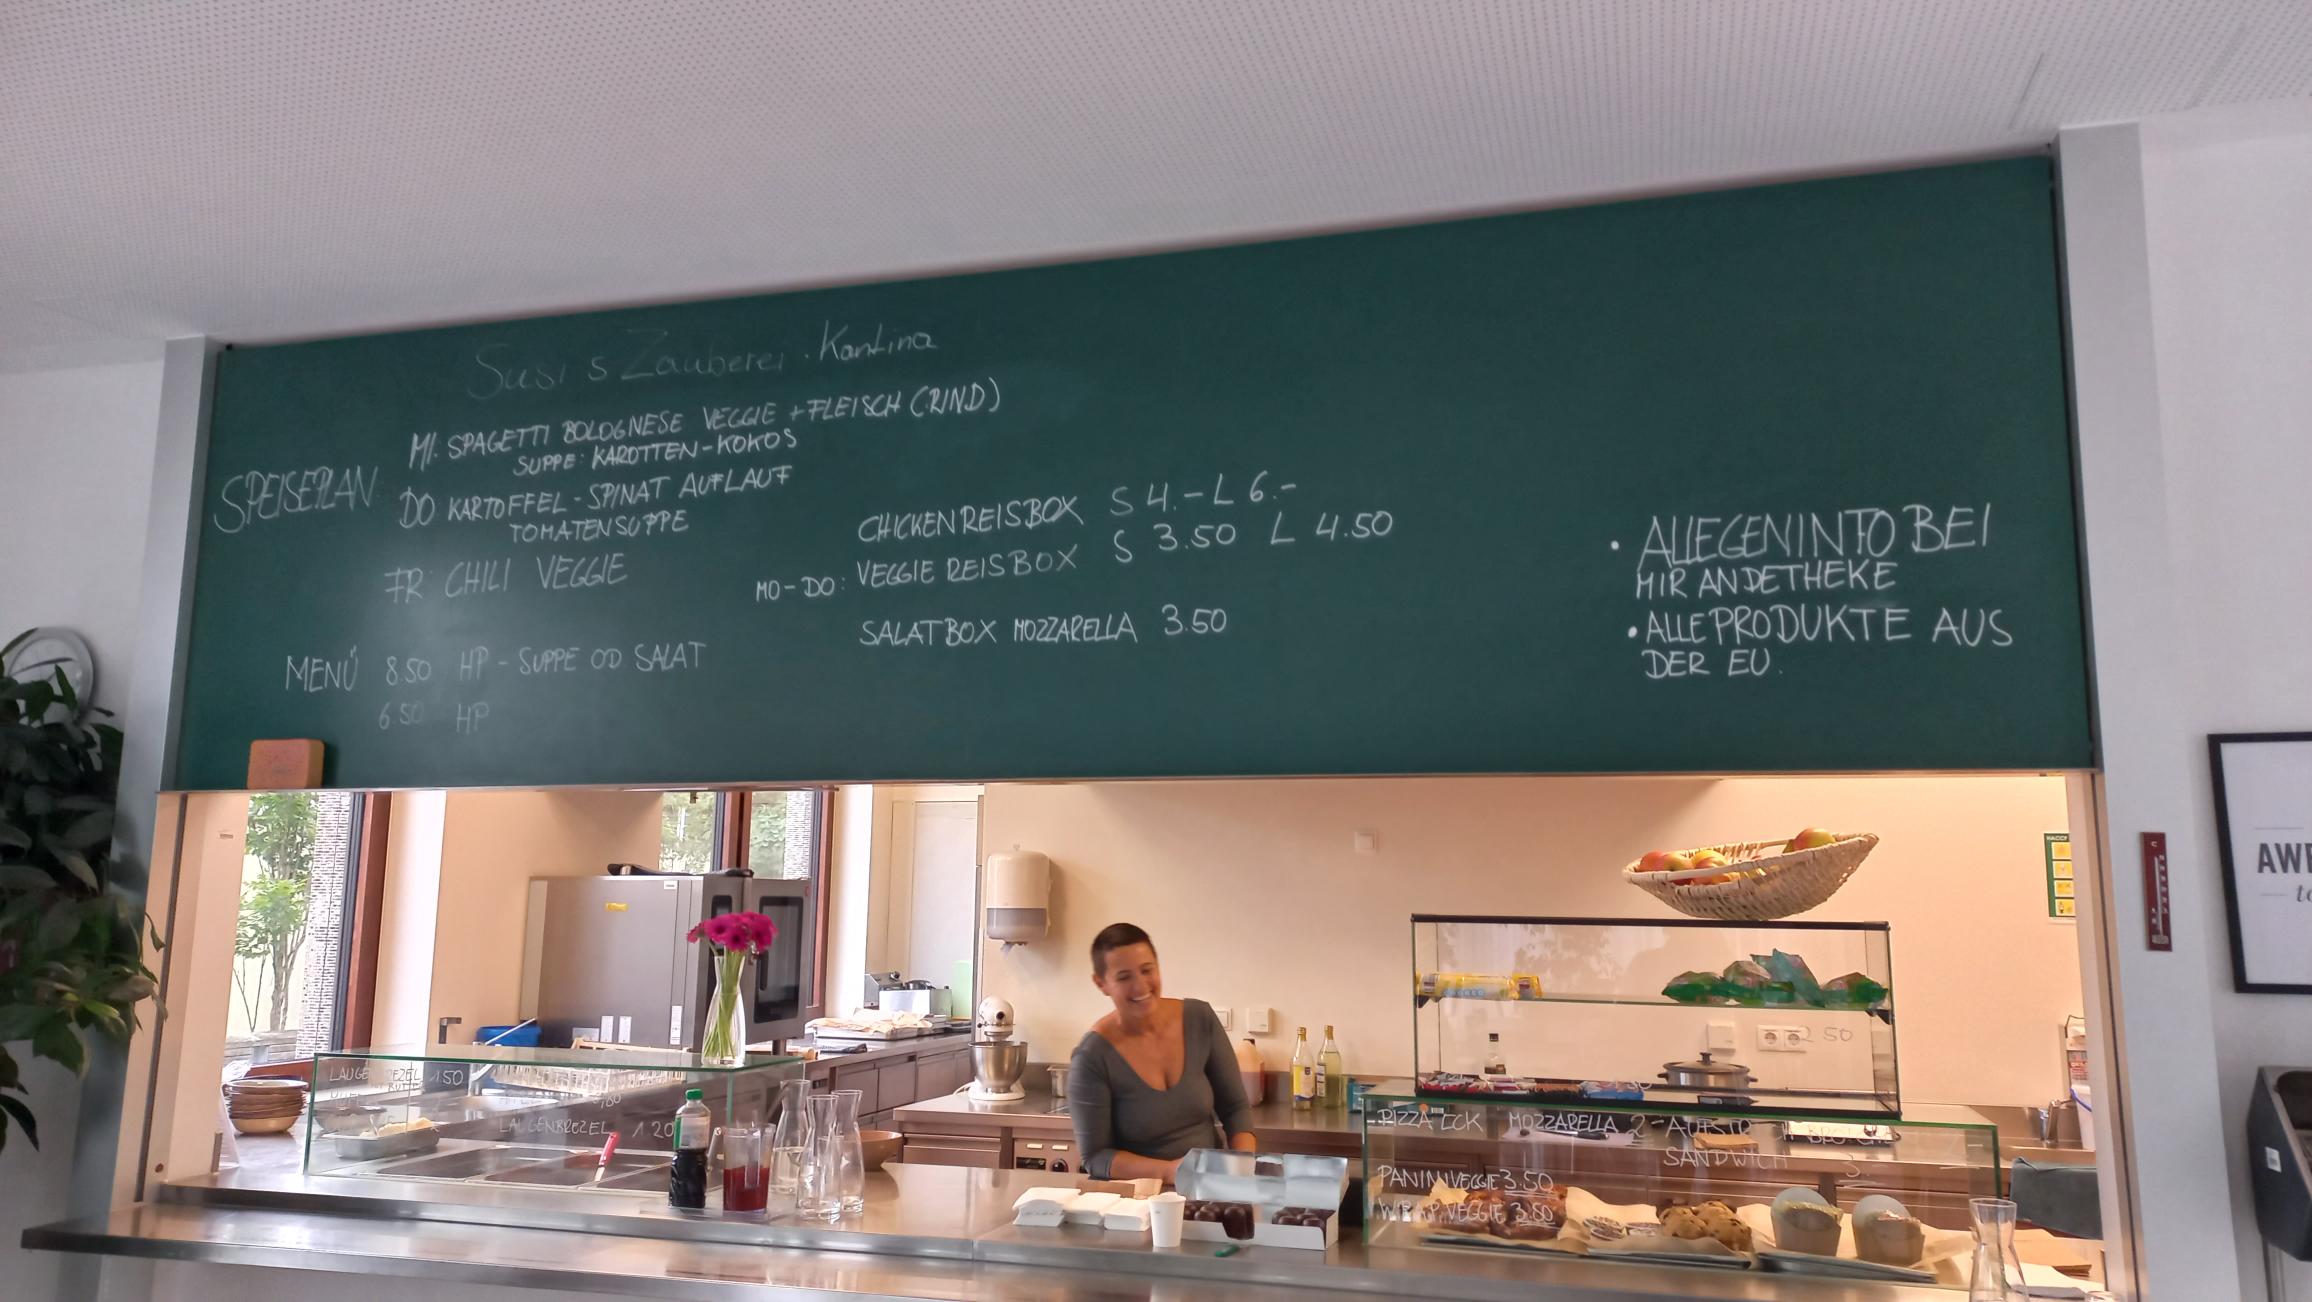 Susi s Zauberei . Kantina
SPEISEPLAN:
MI. SPAGETTI BOLOGNESE VEGGIE + FLEISCH (RIND)
SUPPE: KAROTTEN-KOKOS
DO KARTOFFEL-SPINAT AUFLAUF
TOMATENSUPPE
FR CHILI VEGGIE
MENÜ 8.50 HP - SUPPE OD SALAT
6.50 HP
CHICKENREISBOX S 4.- L 6.-
MO-DO: VEGGIE REISBOX S 3.50 L 4.50
SALATBOX MOZZARELLA 3.50
• ALLEGENINFO BEI
MIR AN DE THEKE
• ALLE PRODUKTE AUS
DER EU.
HACCP
AWE
to
2 50
LAUGENBREZEL 1 50
LAUGENBREZEL 1 20
PIZZA ECK MOZZARELLA 2-
SANDWICH 3.-
PANINI VEGGIE 3.50
WRAP VEGGIE 3.80